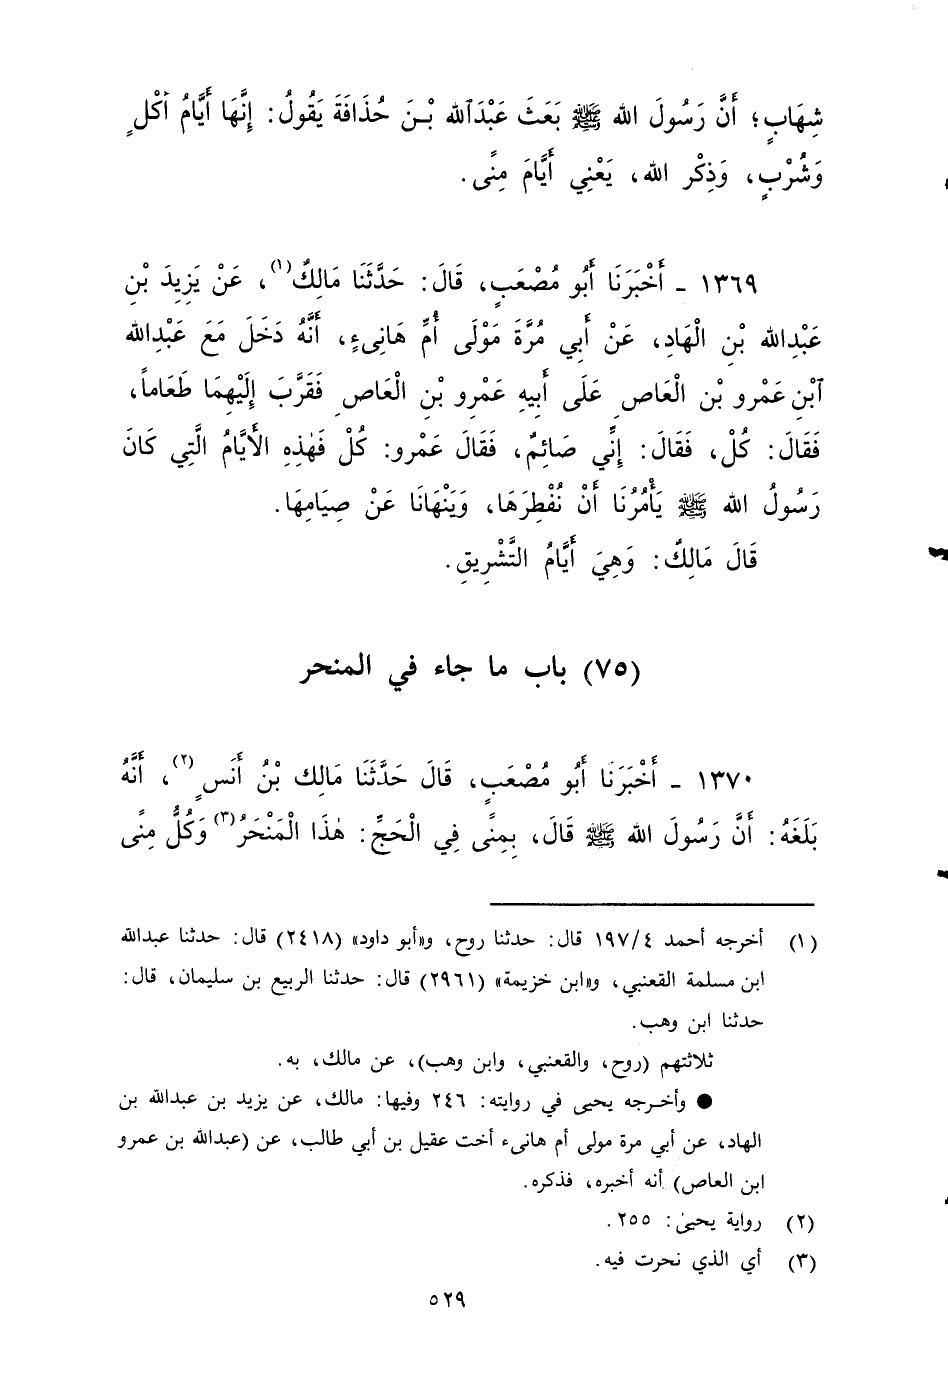 شِهَابٍ؛ أَنَّ رَسُولَ الله ﷺ بَعَثَ عَبْدَٱلله بْنَ حُذَافَةَ يَقُولُ: إِنَّهَا أَيَّامُ أَكْلٍ
وَشُرْبٍ، وَذِكْر الله، يَعْنِي أَيَّامَ مِنًى.
١٣٦٩ - أَخْبَرَنَا أَبُو مُصْعَبٍ، قَالَ: حَدَّثَنَا مَالِكٌ(١)، عَنْ يَزِيدَ بْنِ
عَبْدِالله بْنِ الْهَادِ، عَنْ أَبِي مُرَّةَ مَوْلَى أُمِّ هَانِىءٍ، أَنَّهُ دَخَلَ مَعَ عَبْدِالله
ٱبْنِ عَمْرو بْنِ الْعَاصِ عَلَى أَبِيهِ عَمْرِو بْنِ الْعَاصِ فَقَرَّبَ إِلَيْهِمَا طَعَاماً،
فَقَالَ: كُلْ، فَقَالَ: إِنِّي صَائِمٌ، فَقَالَ عَمْرو: كُلْ فَهٰذِهِ الأَيَّامُ الَّتِي كَانَ
رَسُولُ الله ﷺ يَأْمُرُنَا أَنْ نُفْطِرَهَا، وَيَنْهَانَا عَنْ صِيَامِهَا.
قَالَ مَالِكٌ: وَهِيَ أَيَّامُ التَّشْرِيقِ.
(٧٥) باب ما جاء في المنحر
١٣٧٠ - أَخْبَرَنَا أَبُو مُصْعَبٍ، قَالَ حَدَّثَنَا مَالِك بْنُ أَنَسٍ(٢)، أَنَّهُ
بَلَغَهُ: أَنَّ رَسُولَ الله ﷺ قَالَ، بِمِنًى فِي الْحَجِّ: هٰذَا الْمَنْحَرُ(٣) وَكُلُّ مِنًى
(١) أخرجه أحمد ١٩٧/٤ قال: حدثنا روح، و«أبو داود» (٢٤١٨) قال: حدثنا عبدالله
ابن مسلمة القعنبي، و«ابن خزيمة» (٢٩٦١) قال: حدثنا الربيع بن سليمان، قال:
حدثنا ابن وهب.
ثلاثتهم (روح، والقعنبي، وابن وهب)، عن مالك، به.
● وأخرجه يحيى في روايته: ٢٤٦ وفيها: مالك، عن يزيد بن عبدالله بن
الهاد، عن أبي مرة مولى أم هانىء أخت عقيل بن أبي طالب، عن (عبدالله بن عمرو
ابن العاص) أنه أخبره، فذكره.
(٢) رواية يحيىٰ: ٢٥٥.
(٣) أي الذي نحرت فيه.
٥٢٩